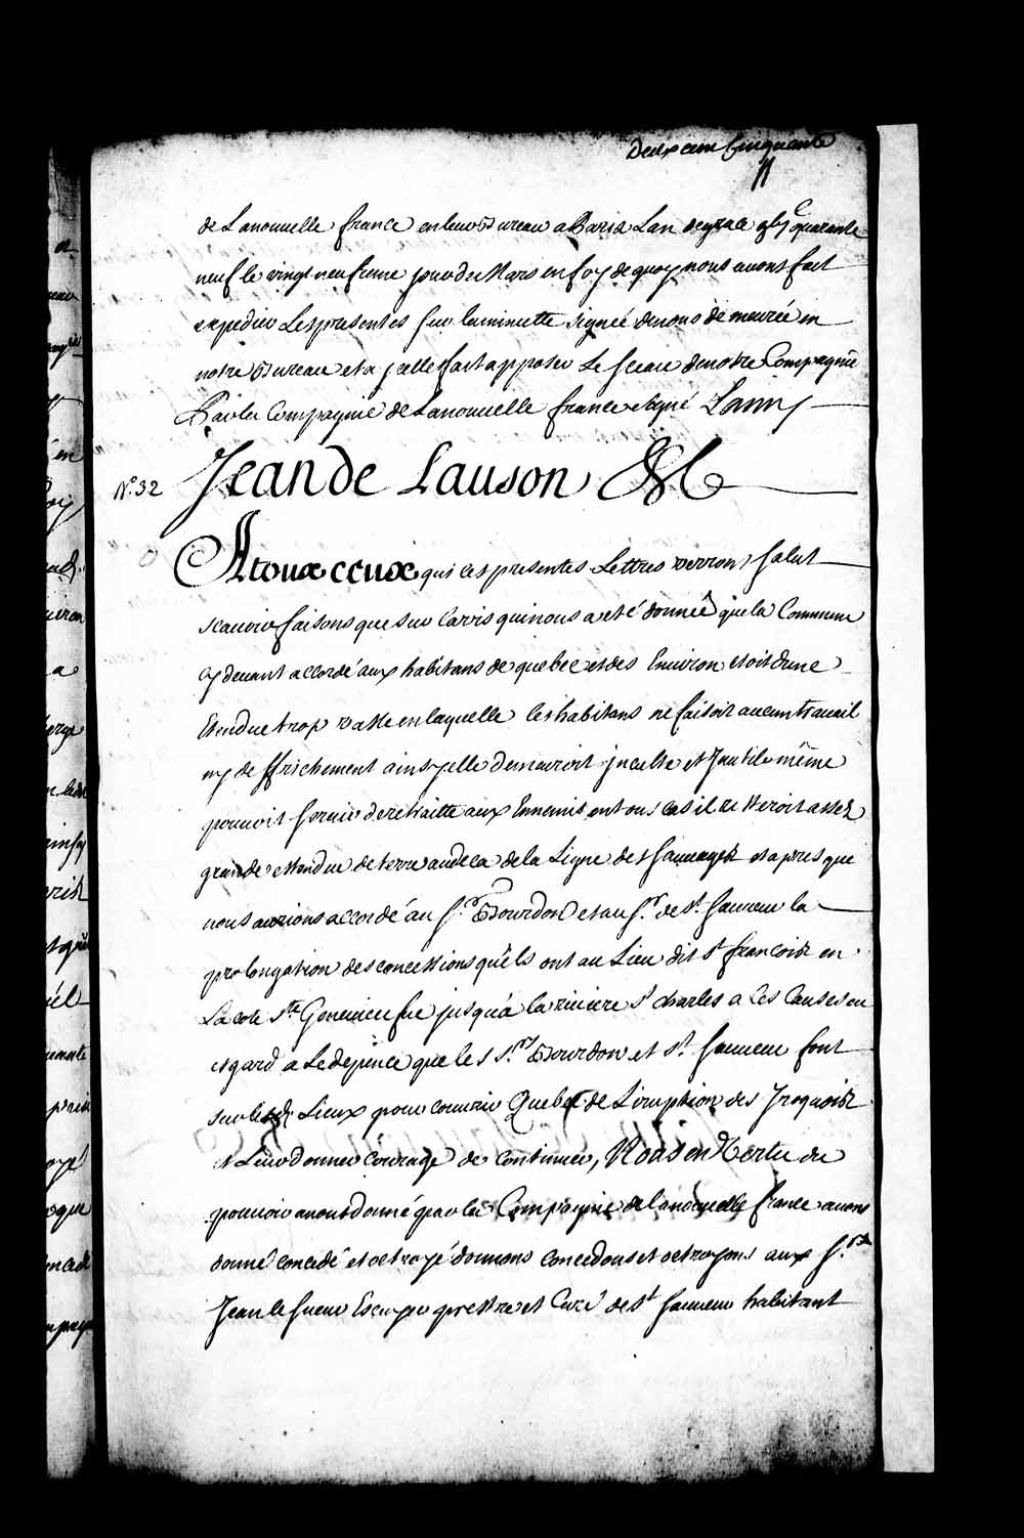 Deux cent Cinquante
de Lanouvelle france en leur Bureau a Paris Lan de grace gbjc quarante
neuf le vingt neufieme jour de Mars en foy de quoy nous avons fait
expedier Les presentes sur la minutte signeé de nous demeureé en
notre Bureau et a jcelle fait apposer Le sceau de nostre Compagnie
Par la Compagnie de Lanouvelle france signé Lamy
No. 32 Jean de Lauson &c
A tous ceux qui ces presentes Lettres verront salut
scavoir faisons que sur Lavis qui nous a eté donneé que la Commune
cy devant accordé aux habitans de quebec et des Environ etoit d'une
Etendue trop vaste en laquelle les habitans ne faisoit aucun travail
ny deffrichement ainsy elle demeuroit jnculte et Jnutile même
pouvoit servir de retraitte aux Ennemis, en tous cas il resteroit assez
grande etendue de terre au deca de la Ligne des sauvages et apres que
nous aurions accordé au Sr. Bourdon et au Sr. de St. Sauveur la
prolongation des concessions qu'ils ont au Lieu dit St françois en
La cote Ste Genevieufve jusqu'à la riviere St charles a Ces Causes eu
esgard a Le depence que les Srs. Bourdon et St. Sauveur font
sur lesd. Lieux pour couvrir Quebec de Liruption des Jroquois
et Leur donner Courage de Continuer, Nous en Vertu du
pouvoir a nous donné par la Compagnie de lanouvelle france avons
donné concedé et octroyé donnons concedons et octroyons aux Srs.
Jean le Sueur Escuyer prestre et Curé de St Sauveur habitant